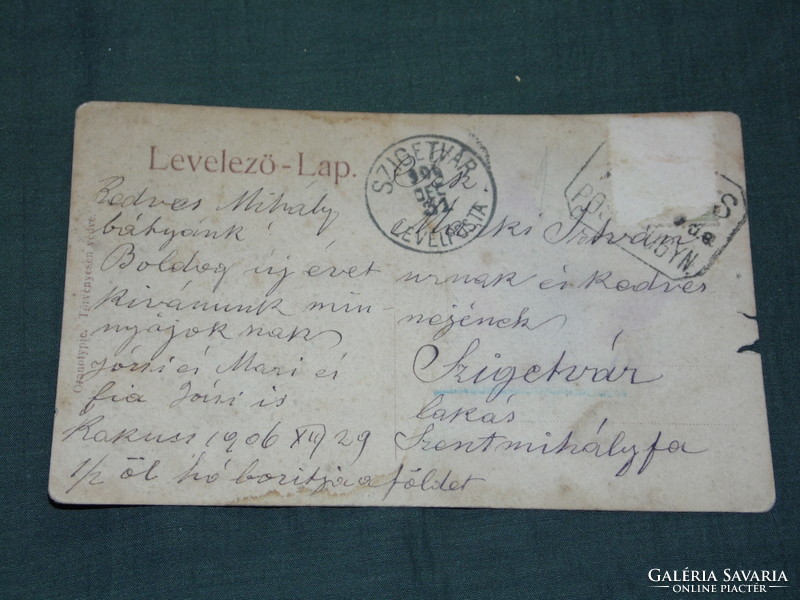 Levelező-Lap.
SZIGETVÁR
906 DEC 31
LEVÉLPOSTA
Kedves Mihály
bátyánk!
Boldog új évet
kivánunk min-
nyájoknak
Józsi és Mari és
fia Józsi is
Kakucs 1906 XII/29
1/2 öl hó boritja a földet
István
urnak és kedves
nejének
Szigetvár
lakás
Szentmihályfa
Törvényesen védve.
GALÉRIA SAVARIA
ONLINE PIACTÉR